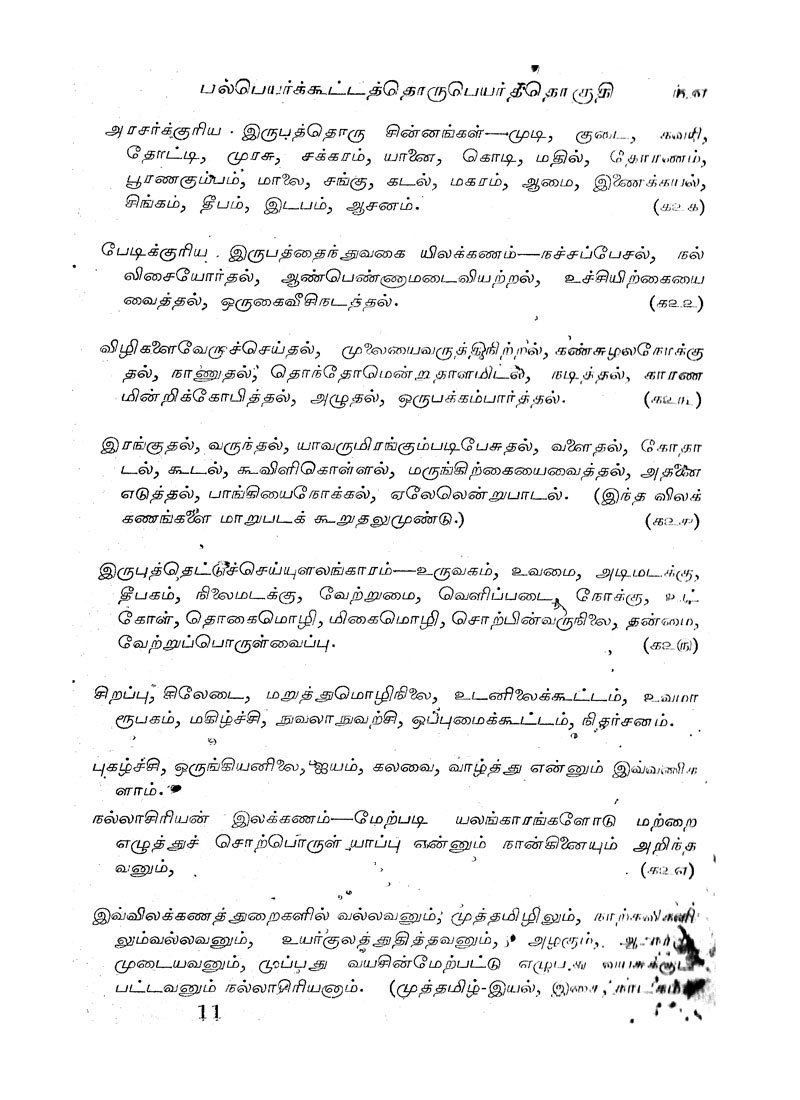 பல்பெயர்க்கூட்டத்தொருபெயர்த்தொகுதி
அரசர்க்குரிய இருபத்தொரு சின்னங்கள்—முடி, குடை, கவரி,
தோட்டி, முரசு, சக்கரம், யானை, கொடி, மதில், தோரணம்,
பூரணகும்பம், மாலை, சங்கு, கடல், மகரம், ஆமை, இணைக்கயல்,
சிங்கம், தீபம், இடபம், ஆசனம். (௧௨௧)
பேடிக்குரிய இருபத்தைந்துவகை யிலக்கணம்—நச்சப்பேசல், நல்
லிசையோர்தல், ஆண்பெண்ணுமடைவியற்றல், உச்சியிற்கையை
வைத்தல், ஒருகைவீசிநடந்தல். (௧௨௨)
விழிகளைவேறுச்செய்தல், முலையைவருத்திநிற்றல், கண்சுழலநோக்கு
தல், நாணுதல், தொந்தோமென்றுதாளமிடல், நடித்தல், காரண
மின்றிக்கோபித்தல், அழுதல், ஒருபக்கம்பார்த்தல். (௧௨௩)
இரங்குதல், வருந்தல், யாவருமிரங்கும்படிபேசுதல், வளைதல், கோதா
டல், கூடல், கூவிளிகொள்ளல், மருங்கிற்கையைவைத்தல், அதனை
எடுத்தல், பாங்கியைநோக்கல், ஏலேலென்றுபாடல். (இந்த விலக்
கணங்களை மாறுபடக் கூறுதலுமுண்டு.) (௧௨௪)
இருபுத்தெட்டுச்செய்யுளலங்காரம்—உருவகம், உவமை, அடிமடக்கு,
தீபகம், நிலைமடக்கு, வேற்றுமை, வெளிப்படை, நோக்கு, உட்
கோள், தொகைமொழி, மிகைமொழி, சொற்பின்வருநிலை, தன்மை,
வேற்றுப்பொருள்வைப்பு. (௧௨௫)
சிறப்பு, சிலேடை, மறுத்துமொழிநிலை, உடனிலைக்கூட்டம், உவமா
ரூபகம், மகிழ்ச்சி, நுவலாநுவற்சி, ஒப்புமைக்கூட்டம், நிதர்சனம்.
புகழ்ச்சி, ஒருங்கியனிலை, ஐயம், கலவை, வாழ்த்து என்னும் இவ்வணிக
ளாம்.
நல்லாசிரியன் இலக்கணம்—மேற்படி யலங்காரங்களோடு மற்றை
எழுத்துச் சொற்பொருள் யாப்பு என்னும் நான்கினையும் அறிந்த
வனும், (௧௨௭)
இவ்விலக்கணத்துறைகளில் வல்லவனும், முத்தமிழிலும், நாற்கவிகளி
லும்வல்லவனும், உயர்குலத்துதித்தவனும், அழகும்,
முடையவனும், முப்பது வயசின்மேற்பட்டு எழுபது வயசுக்குட்
பட்டவனும் நல்லாசிரியனாம். (முத்தமிழ்-இயல், இசை, நாடகம்
11